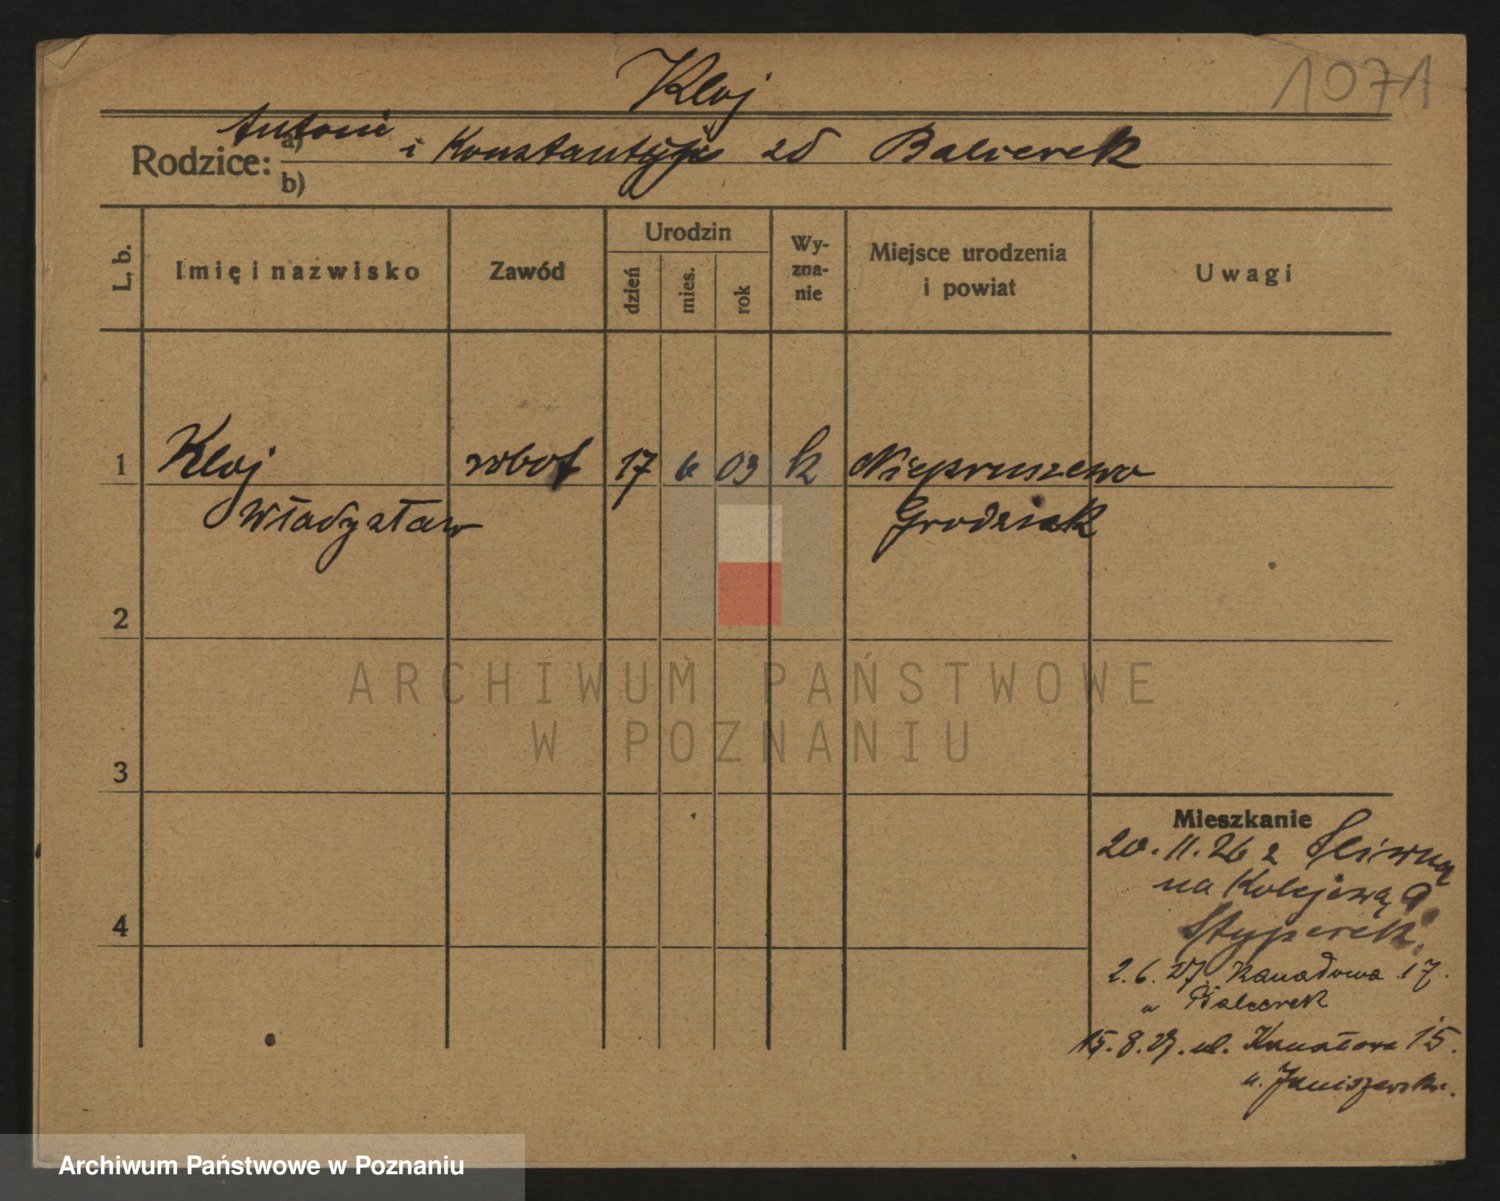 Kloj
1071
Antoni
Rodzice: a) i Konstantyja zd Balcerek
b)
L. b.
Imię i nazwisko
Zawód
Urodzin
dzień
mies.
rok
Wy-
zna-
nie
Miejsce urodzenia
i powiat
Uwagi
1 Kloj robot 17 6 03 k Niepruszewo
Władysław Grodzisk
2
3
4
Mieszkanie
20.11.26 z Śliwną
na Kolejową 9
Styperek
2.6.27. Kanałowa 17.
u Balcerek
15.8.27. ul. Kanałowa 15.
u. Janiszewsk.
ARCHIWUM PAŃSTWOWE
W POZNANIU
Archiwum Państwowe w Poznaniu